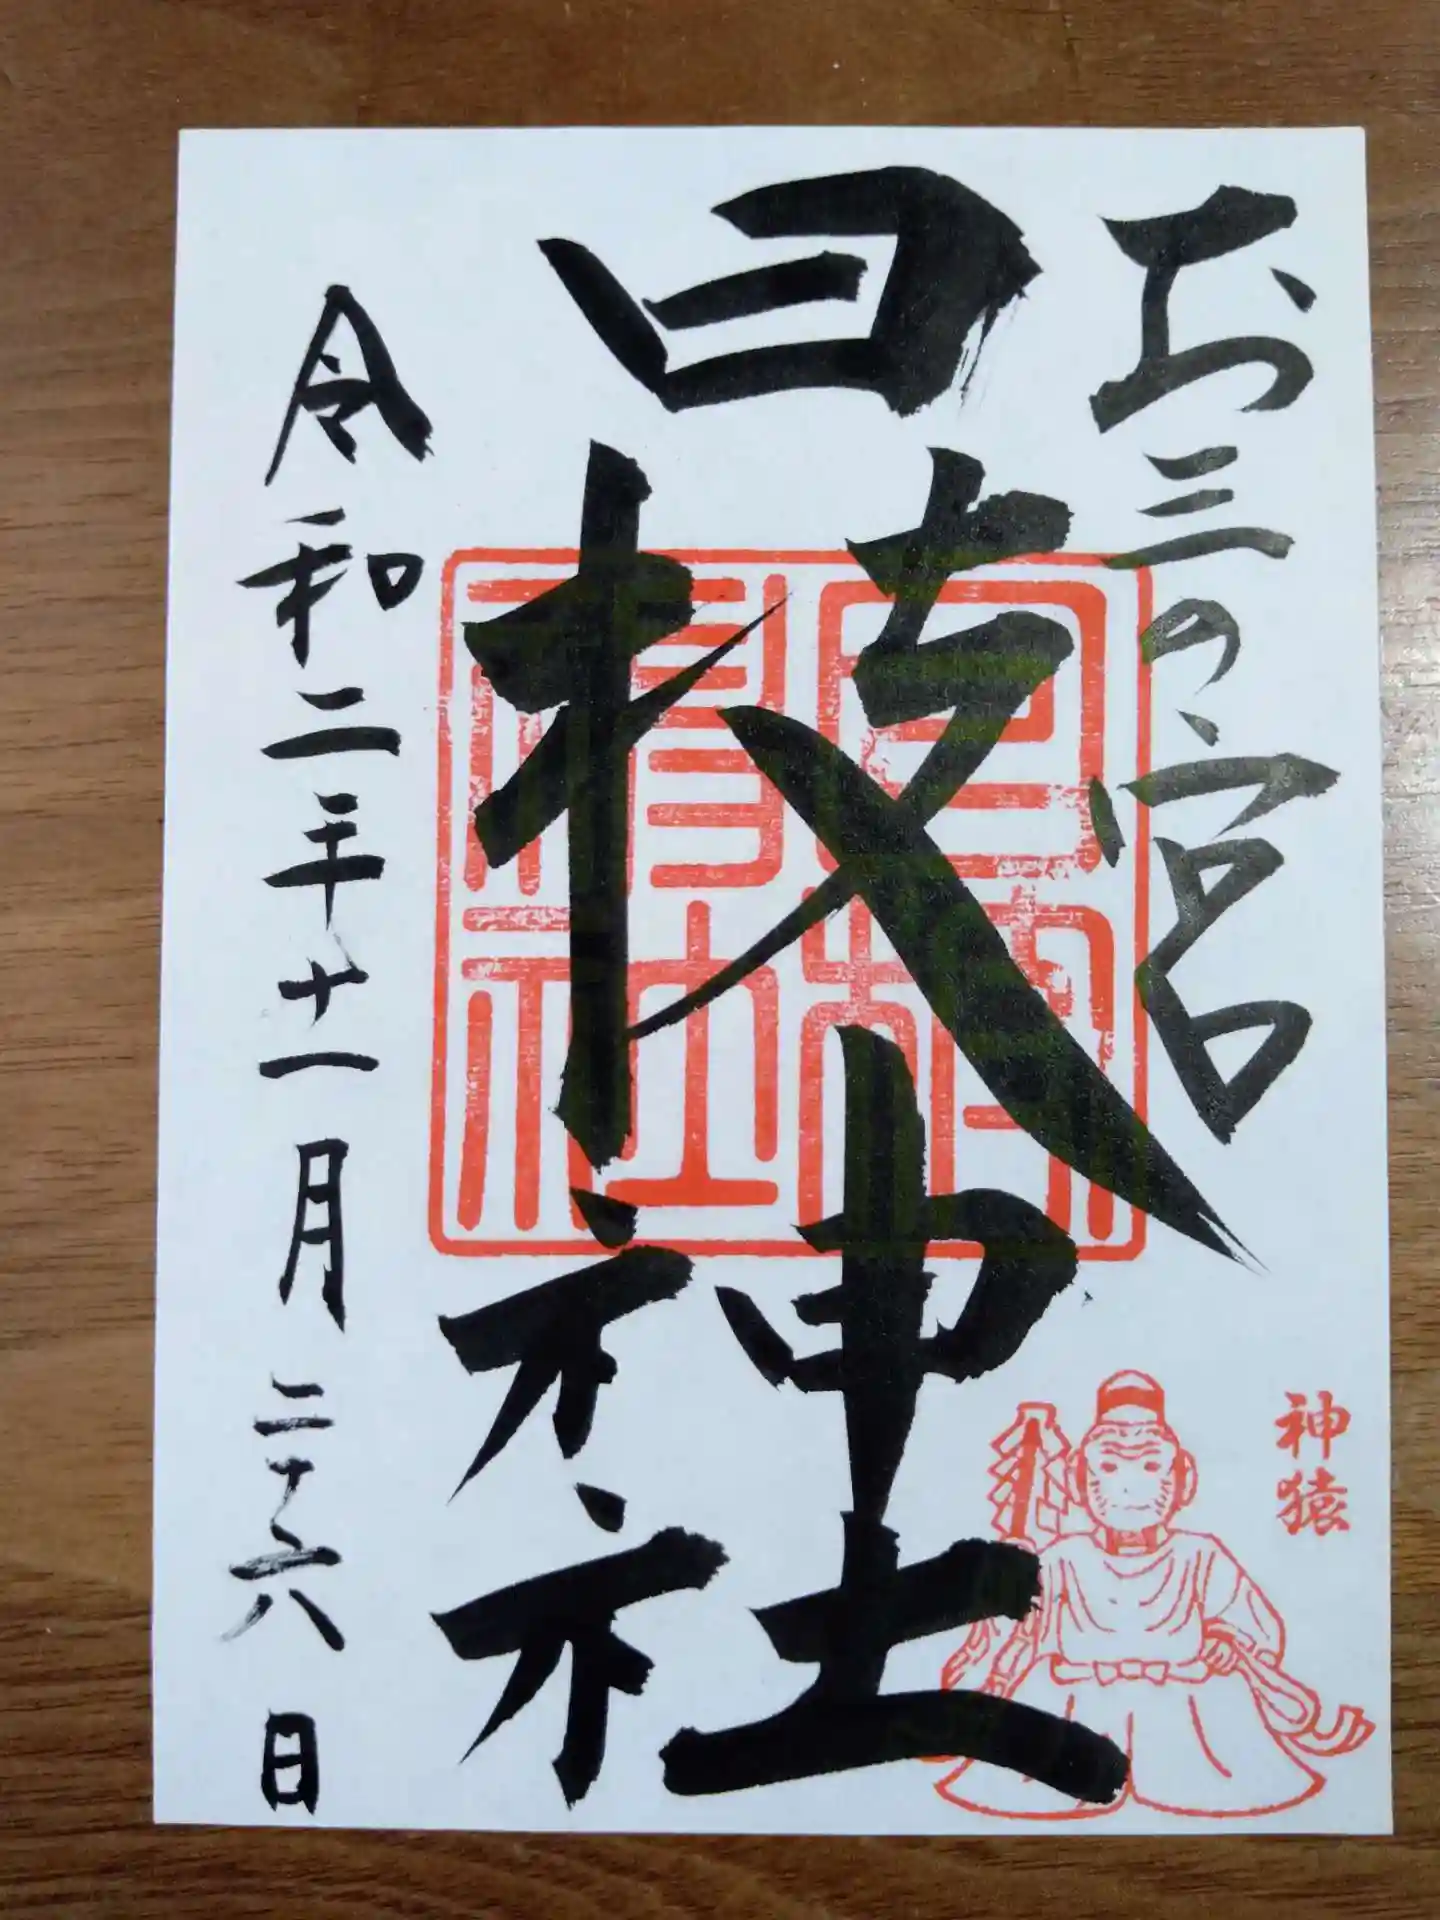 お三の宮
日枝神社
令和二年十一月二十六日
日枝神社
神猿